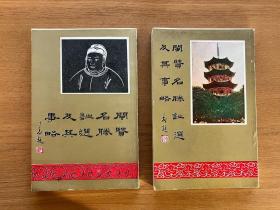 閩賢
名勝
詩選
及其
事略
閩賢名勝詩選
及其事略